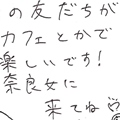 の友だちが
カフェとかで
楽しいです!
奈良女に
来てね♡